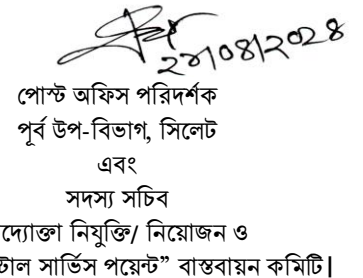 ২৮/০৪/২০২৪
পোস্ট অফিস পরিদর্শক
পূর্ব উপ-বিভাগ, সিলেট
এবং
সদস্য সচিব
দ্যোক্তা নিযুক্তি/ নিয়োজন ও
টাল সার্ভিস পয়েন্ট” বাস্তবায়ন কমিটি|